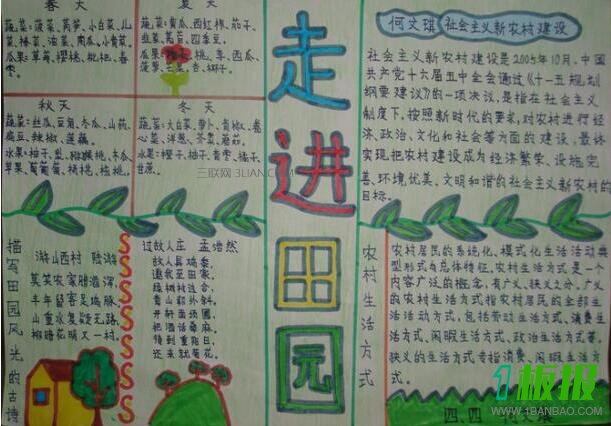 春天
蔬菜：菠菜、莴笋、小白菜、儿
菜、椿菜、油菜、南瓜、小青菜。
瓜果：草莓、樱桃、枇杷、春
枣。
夏天
蔬菜：黄瓜、西红柿、茄子、
韭菜、莴苣、四季豆。
桃、李、西瓜、
菠萝、芒果、杏、椰子。
秋天
蔬菜：丝瓜、豆角、冬瓜、山药、
扁豆、辣椒、莲藕。
水果：柚子、梨、猕猴桃、木瓜、
苹果、葡萄、核桃、
冬天
蔬菜：大白菜、萝卜、青椒、卷
心菜、洋葱、芥蓝、蘑菇。
水果：橙子、柚子、青枣、橘子、
甘蔗。
三联网 3LIAN.COM
走进田园
何文琪 社会主义新农村建设
社会主义新农村建设是2005年10月，中国
共产党十六届五中全会通过《十一五规划
纲要建议》的一项决议，是指在社会主义
制度下，按照新时代的要求，对农村进行经
济、政治、文化和社会等方面的建设，最终
实现把农村建设成为经济繁荣、设施完
善、环境优美、文明和谐的社会主义新农村的
目标。
描写田园风光的古诗
游山西村 陆游
莫笑农家腊酒浑，
丰年留客足鸡豚。
山重水复疑无路，
柳暗花明又一村。
SSSSSSSS
过故人庄 孟浩然
故人具鸡黍，
邀我至田家。
绿树村边合，
青山郭外斜。
开轩面场圃，
把酒话桑麻。
待到重阳日，
还来就菊花。
农村生活方式
农村居民的系统化、模式化生活活动典
型形式与总体特征。农村生活方式是一个
内容广泛的概念，有广义、狭义之分。广义
的农村生活方式指农村居民的全部生
活活动方式，包括劳动生活方式、消费生
活方式、闲暇生活方式、政治生活方式等。
狭义的生活方式专指消费、闲暇生活方
式。
四、四 何文琪
1板报
WWW.1BANBAO.COM